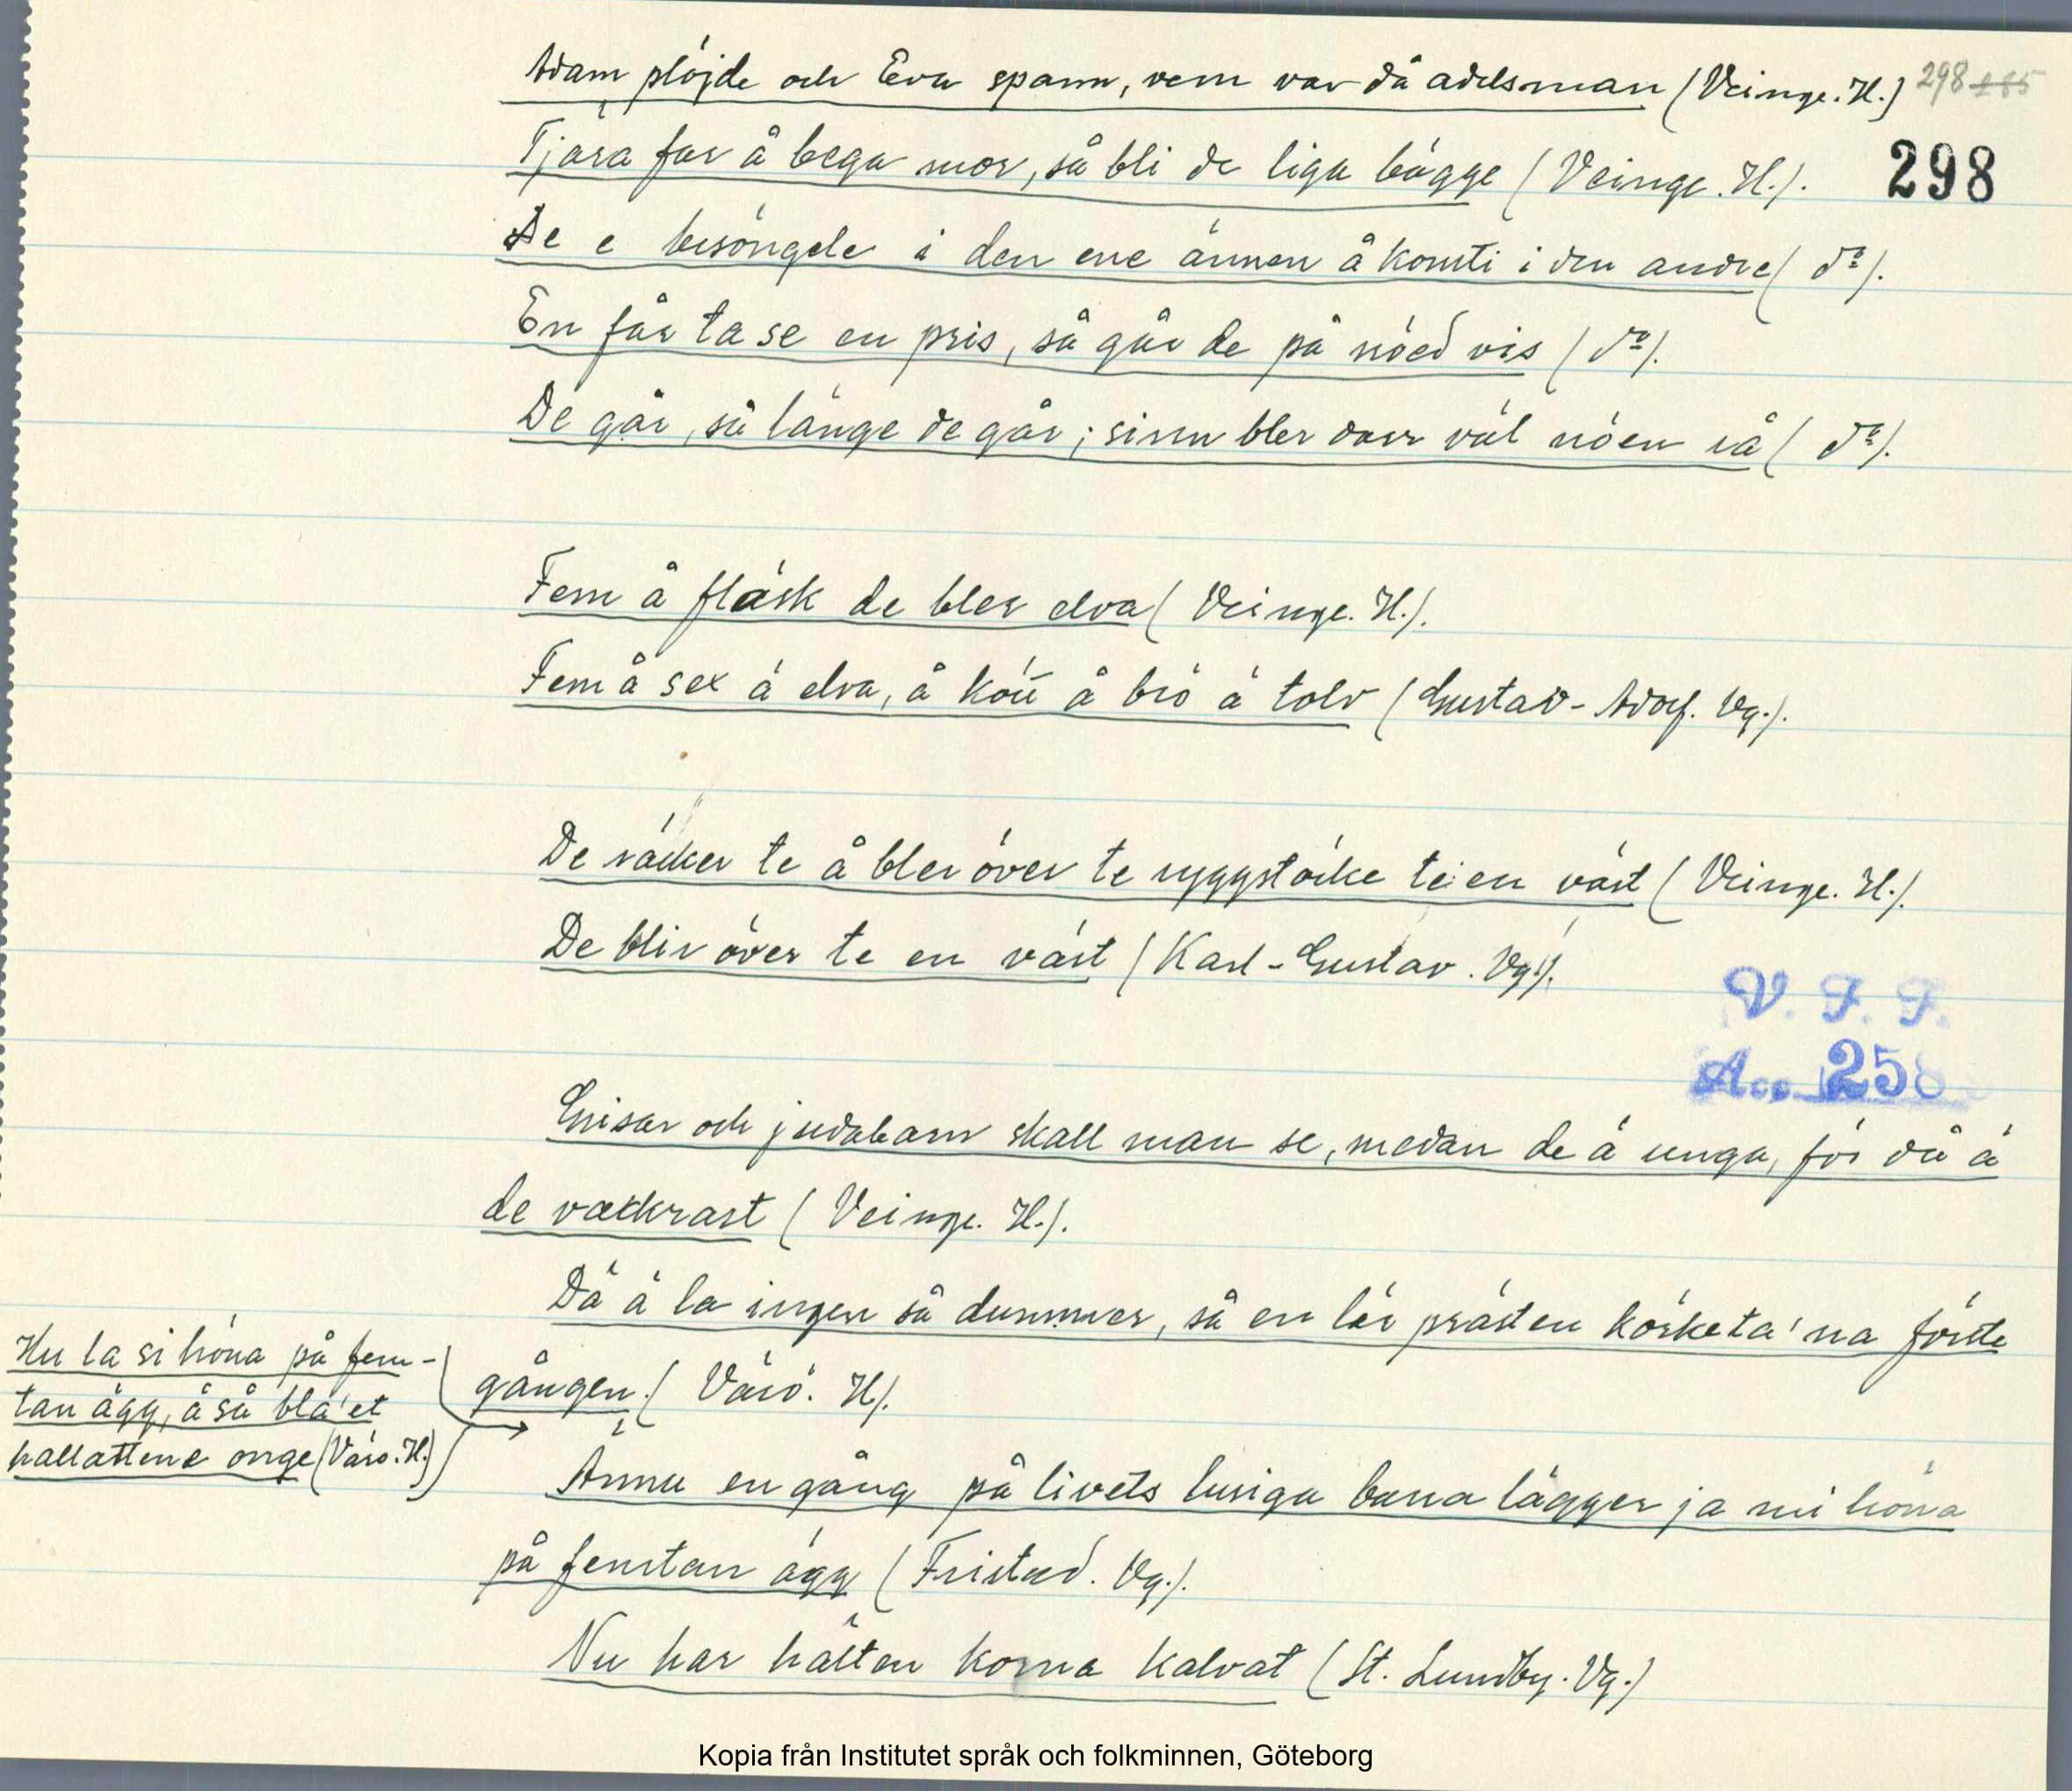 Adam plöjde och Eva spann, vem var då adelsman (Veinge. H.) 298 185
Tjära far å bega mor, så bli de liga bägge (Veinge. H.).
298
De e besöngele i den ene ännen å komti i den andre (dº).
En får ta se en pris, så går de på nöed vis (dº).
De går, så länge de går; sinn bler darr väl nöen rå (dº).
Fem å fläsk de bler elva (Veinge. H.).
Fem å sex ä elva, å kött å brö ä tolv (Gustav-Adolf. Vg.).
De räcker te å bler över te ryggstöcke te en väst (Veinge. H.).
De blir över te en väst (Karl-Gustav. Vg.).
V. F. F.
Acc. 258
Grisar och judabarn skall man se, medan de ä unga, för då ä
de vackrast (Veinge. H.).
Dä ä la ingen så dummer, så en lär prästen körketa'na förste
gången. (Värö. H.).
Hu la si höna på fem-
tan ägg, å så bla'et
hallattene onge (Värö. H.)
Ännu en gång på livets lusiga bana lägger ja mi höna
på femtan ägg (Fristad. Vg.).
Nu har hälten korna kalvat (St. Lundby. Vg.)
Kopia från Institutet språk och folkminnen, Göteborg